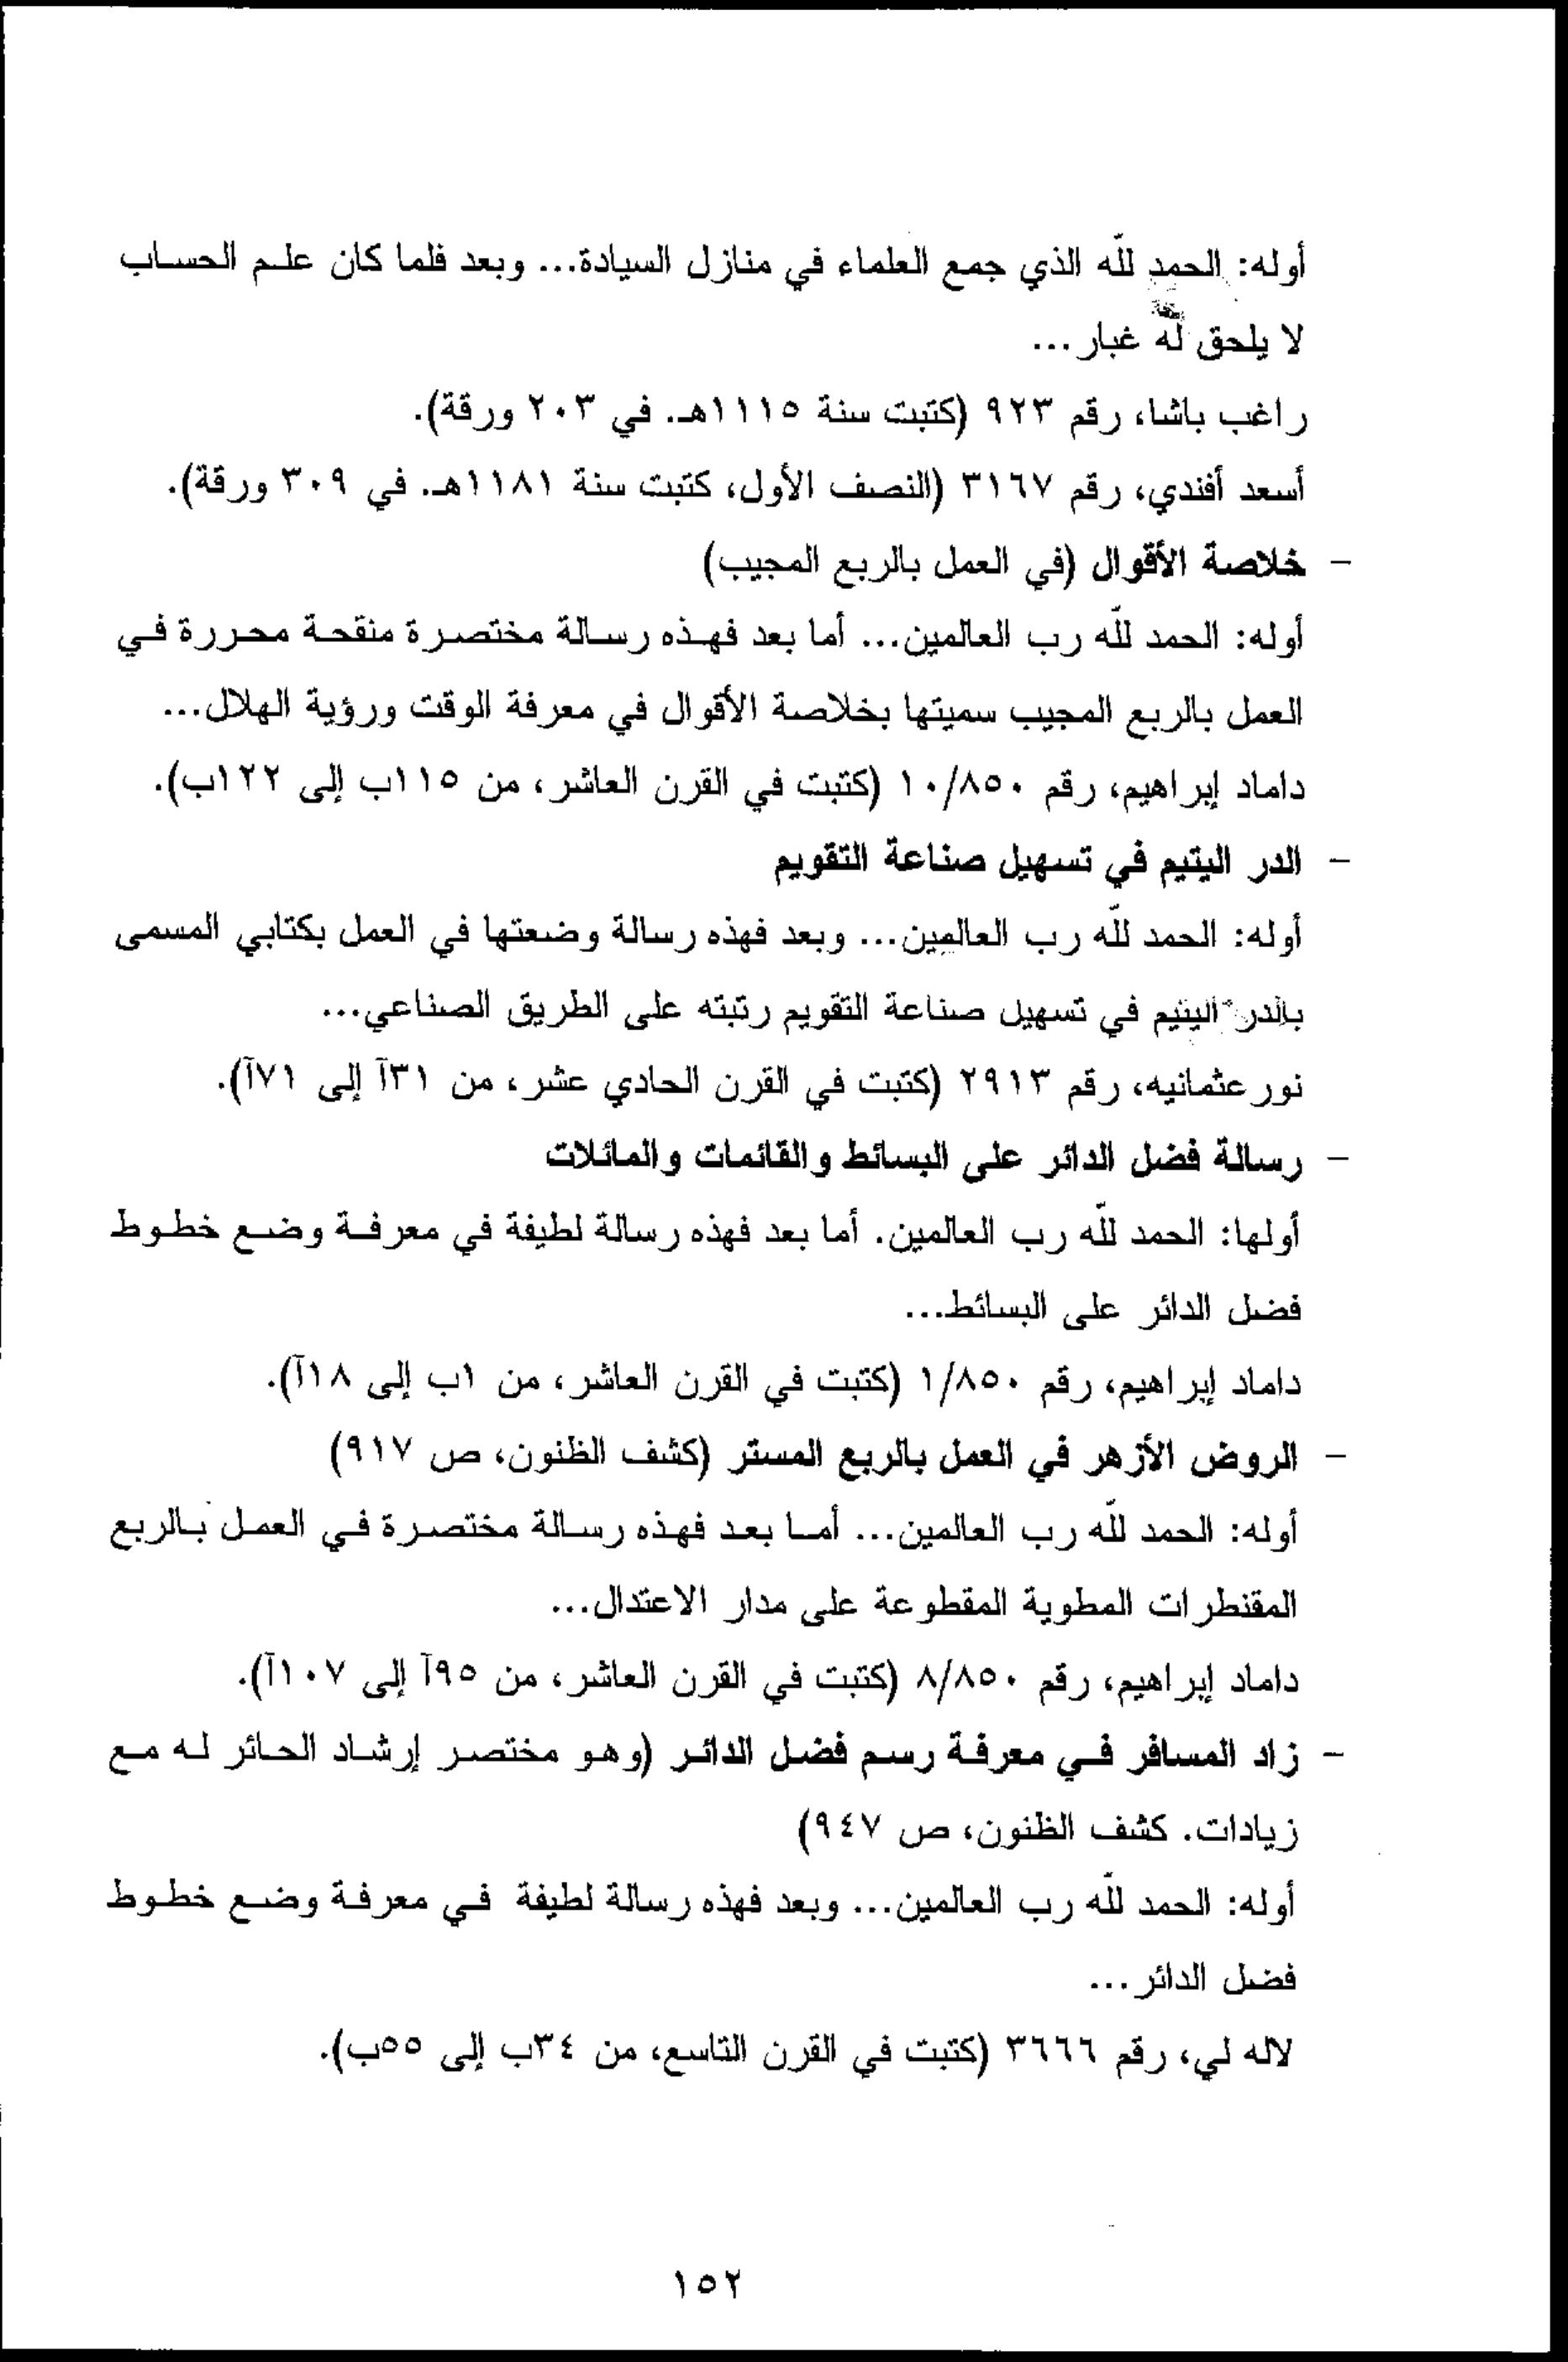 أوله: الحمد لله الذي جمع العلماء في منازل السيادة... وبعد فلما كان علم الحساب
لا يلحق له غبار...
راغب باشا، رقم ٩٢٣ (كتبت سنة ١١١٥هـ. في ٢٠٣ ورقة).
أسعد أفندي، رقم ٣١٦٧ (النصف الأول، كتبت سنة ١١٨١هـ. في ٣٠٩ ورقة).
- خلاصة الأقوال (في العمل بالربع المجيب)
أوله: الحمد لله رب العالمين... أما بعد فهذه رسالة مختصرة منقحة محررة في
العمل بالربع المجيب سميتها بخلاصة الأقوال في معرفة الوقت ورؤية الهلال...
داماد إبراهيم، رقم ١٠/٨٥٠ (كتبت في القرن العاشر، من ١١٥ب إلى ١٢٢ب).
- الدر اليتيم في تسهيل صناعة التقويم
أوله: الحمد لله رب العالمين... وبعد فهذه رسالة وضعتها في العمل بكتابي المسمى
بالدر اليتيم في تسهيل صناعة التقويم رتبته على الطريق الصناعي...
نور عثمانيه، رقم ٢٩١٣ (كتبت في القرن الحادي عشر، من ٣١آ إلى ٧١آ).
- رسالة فضل الدائر على البسائط والقائمات والمائلات
أولها: الحمد لله رب العالمين. أما بعد فهذه رسالة لطيفة في معرفة وضع خطوط
فضل الدائر على البسائط...
داماد إبراهيم، رقم ١/٨٥٠ (كتبت في القرن العاشر، من ١ب إلى ١٨آ).
- الروض الأزهر في العمل بالربع المستر (كشف الظنون، ص ٩١٧)
أوله: الحمد لله رب العالمين... أما بعد فهذه رسالة مختصرة في العمل بالربع
المقنطرات المطوية المقطوعة على مدار الاعتدال...
داماد إبراهيم، رقم ٨/٨٥٠ (كتبت في القرن العاشر، من ٩٥آ إلى ١٠٧آ).
- زاد المسافر في معرفة رسم فضل الدائر (وهو مختصر إرشاد الحائر له مع
زيادات. كشف الظنون، ص ٩٤٧)
أوله: الحمد لله رب العالمين... وبعد فهذه رسالة لطيفة في معرفة وضع خطوط
فضل الدائر...
لاله لي، رقم ٣٦٦٦ (كتبت في القرن التاسع، من ٣٤ب إلى ٥٥ب).
١٥٢